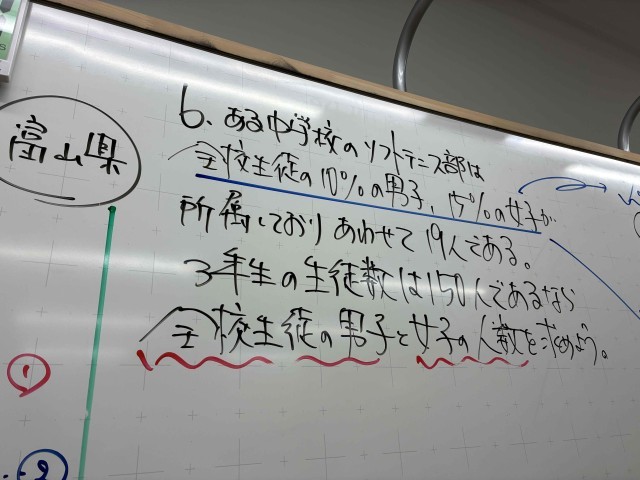 富山県
6、ある中学校のソフトテニス部は
全校生徒の10%の男子、15%の女子が
所属しておりあわせて19人である。
3年生の生徒数は150人であるなら
全校生徒の男子と女子の人数を求めよう。
①
②